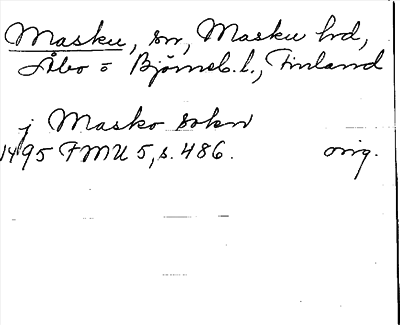 Masku, sn, Masku hd,
Åbo o Björneb. l., Finland
j Masko sokn
1495 FMU 5, s. 486. orig.